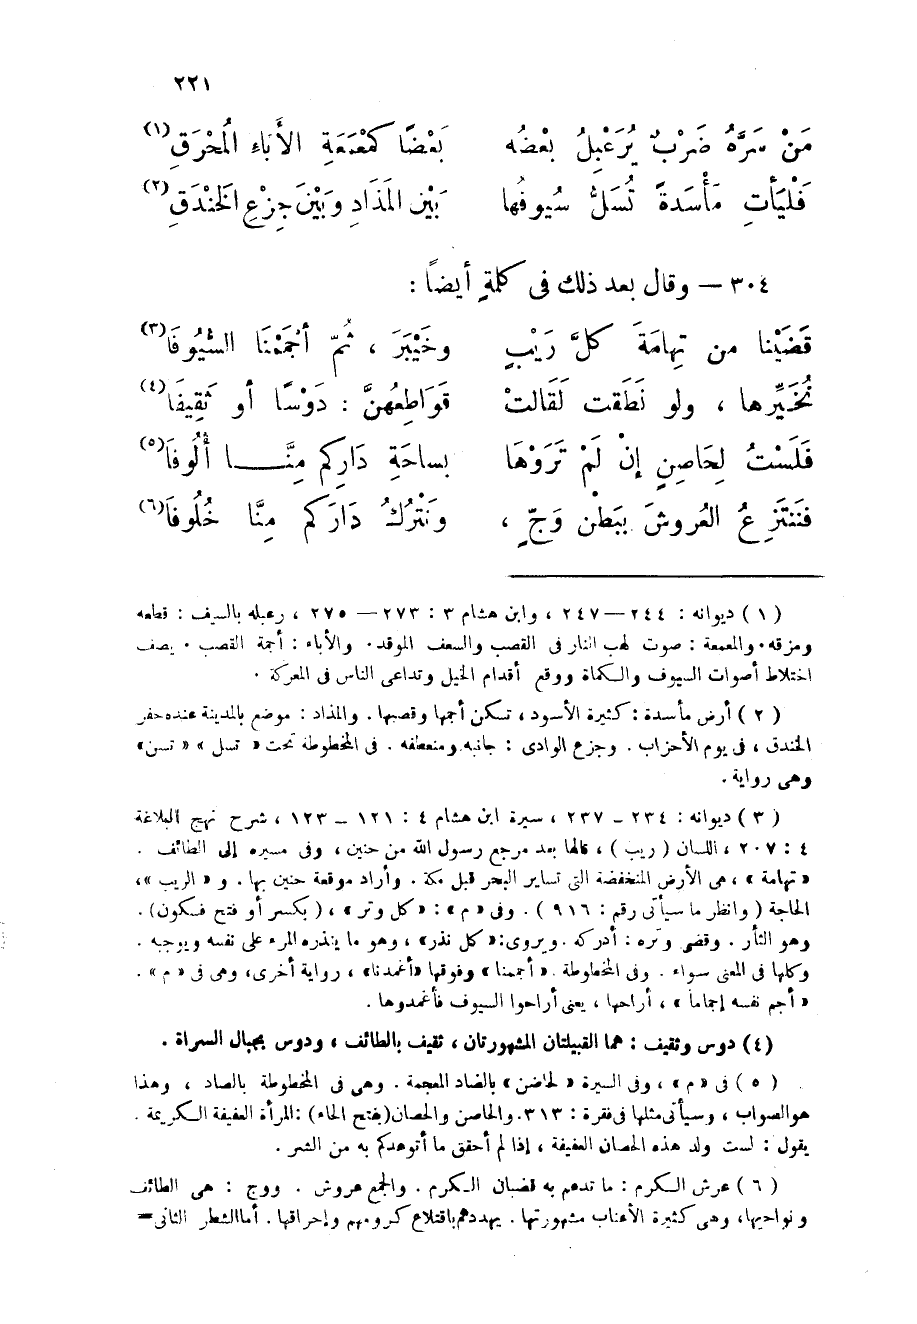 ٢٢١
مَنْ سَرَّهُ ضَرْبٌ يُرَعْبِلُ بعْضُه بَعْضًا كَمَعْمَعَةِ الأَبَاءِ الُمحْرَقِ(١)
فَلْيَأْتِ مَأْسَدَةً تُسَلُّ سُيوفُها بَيْن المَذَادِ وبَيْنَ جِزْعِ الَخنْدَقِ(٢)
٣٠٤ – وقال بعد ذلك فى كلمةٍ أيضًا :
قَضَيْنا من تِهامَةَ كلَّ رَيْبٍ وخَيْبَرَ ، ثُمّ أجْمَمْنَا السُّيُوفَا(٣)
نُخَيِّرها ، ولو نَطَقت لَقَالتْ قَوَاطِعُهُنَّ : دَوْسًا أو ثَقِيفَا(٤)
فَلَسْتُ لِحَاصِنٍ إنْ لَمْ تَرَوْهَا بساحَةِ دَارِكم مِنَّـــا أُلُوفَا(٥)
فنَنْتَزِعُ العُروشَ ببَطْن وَجّ ٍ ، ونَتْرُكُ دَارَكم مِنَّا خُلُوفَا(٦)
( ١ ) ديوانه : ٢٤٤ — ٢٤٧ ، وابن هشام ٣ : ٢٧٣ — ٢٧٥ ، رعبله بالسيف : قطعه
ومزقه . والمعمعة : صوت لهب النار فى القصب والسعف الموقد . والأباء : أجمة القصب . يصف
اختلاط أصوات السيوف والكماة ووقع أقدام الخيل وتداعى الناس فى المعركة .
( ٢ ) أرض مأسدة : كثيرة الأسود ، تسكن أجمها وقصبها . والمذاد : موضع بالمدينة عنده حفر
الخندق ، فى يوم الأحزاب . وجزع الوادى : جانبه ومنعطفه . فى المخطوطة تحت « تسل » « تسن »
وهى رواية .
( ٣ ) ديوانه : ٢٣٤ – ٢٣٧ ، سيرة ابن هشام ٤ : ١٢١ – ١٢٣ ، شرح نهج البلاغة
٤ : ٢٠٧ ، اللسان ( ريب ) ، قالها بعد مرجع رسول الله من حنين ، وفى مسيره إلى الطائف .
« تهامة » ، هى الأرض المنخفضة التى تساير البحر قبل مكة . وأراد موقعة حنين بها . و « الريب » ،
الحاجة ( وانظر ما سيأتى رقم : ٩١٦ ) . وفى « م » : « كل وتر » ، ( بكسر أو فتح فسكون ) .
وهو الثأر . وقضى وتره : أدركه . ويروى : « كل نذر » ، وهو ما ينذره المرء على نفسه ويوجبه .
وكلها فى المعنى سواء . وفى المخطوطة . « أجممنا » وفوقها « أغمدنا » ، رواية أخرى ، وهى فى « م » .
« أجم نفسه إجماماً » ، أراحها ، يعنى أراحوا السيوف فأغمدوها .
(٤) دوس وثقيف : هما القبيلتان المشهورتان ، ثقيف بالطائف ، ودوس بجبال السراة .
( ٥ ) فى « م » ، وفى السيرة « لحاضن » بالضاد المعجمة . وهى فى المخطوطة بالصاد ، وهذا
هو الصواب ، وسيأتى مثلها فى فقرة : ٣١٣ . والحاصن والحصان ( بفتح الحاء ) : المرأة العفيفة الكريمة .
يقول : لست ولد هذه الحصان العفيفة ، إذا لم أحقق ما أتوعدكم به من الشر .
( ٦ ) عرش الكرم : ما تدعم به قضبان الكرم . والجمع عروش . ووج : هى الطائف
ونواحيها ، وهى كثيرة الأعناب مشهورتها . يهددهم باقتلاع كرومهم وإحراقها . أما الشطر الثانى =